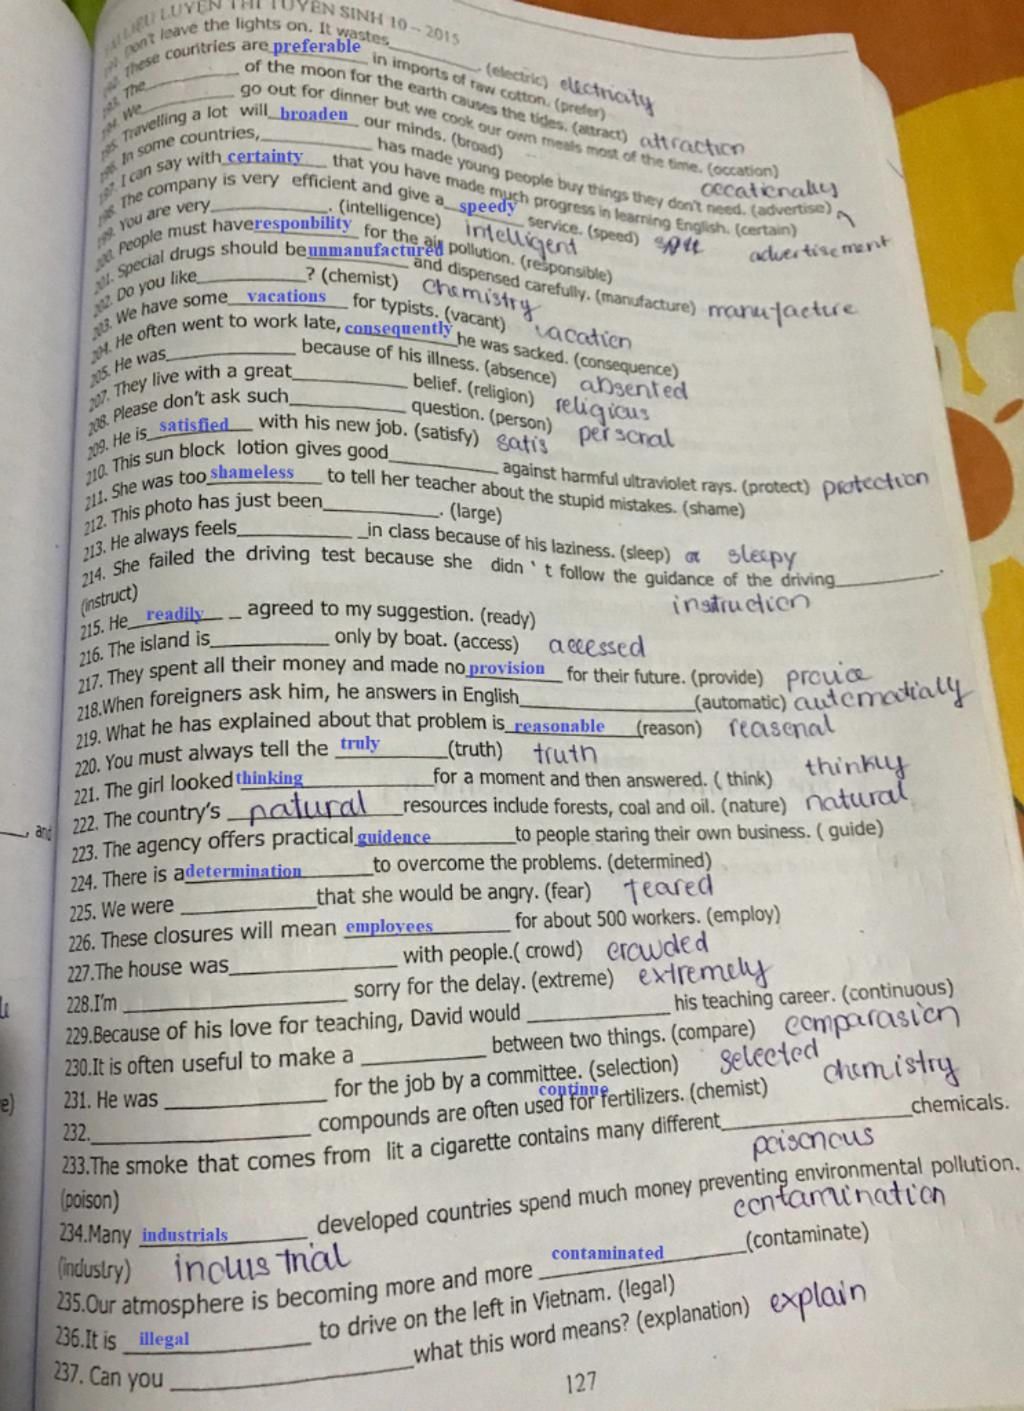 LIỆU LUYỆN THI TUYỂN SINH 10 – 2015
Don't leave the lights on. It wastes__________. (electric) electricity
192. These countries are preferable in imports of raw cotton. (prefer)
193. The__________ of the moon for the earth causes the tides. (attract) attraction
194. We__________ go out for dinner but we cook our own meals most of the time. (occation) occationally
195. Travelling a lot will broaden our minds. (broad)
196. In some countries,__________ has made young people buy things they don't need. (advertise) advertisement
197. I can say with certainty that you have made much progress in learning English. (certain)
198. The company is very efficient and give a speedy service. (speed)
199. You are very__________. (intelligence) intelligent
200. People must have responbility for the air pollution. (responsible)
201. Special drugs should be unmanufactured and dispensed carefully. (manufacture) manufacture
202. Do you like__________? (chemist) chemistry
203. We have some vacations for typists. (vacant) vacation
204. He often went to work late, consequently he was sacked. (consequence)
205. He was__________ because of his illness. (absence) absented
207. They live with a great__________ belief. (religion) religious
208. Please don't ask such__________ question. (person) personal
209. He is satisfied with his new job. (satisfy) satis
210. This sun block lotion gives good__________ against harmful ultraviolet rays. (protect) protection
211. She was too shameless to tell her teacher about the stupid mistakes. (shame)
212. This photo has just been__________. (large)
213. He always feels__________ _in class because of his laziness. (sleep) sleepy
214. She failed the driving test because she didn ' t follow the guidance of the driving__________.
(instruct) instruction
215. He readily _ agreed to my suggestion. (ready)
216. The island is__________ only by boat. (access) accessed
217. They spent all their money and made no provision for their future. (provide)
218.When foreigners ask him, he answers in English__________(automatic) automatially
219. What he has explained about that problem is reasonable (reason) reasonal
220. You must always tell the truly (truth) truth
221. The girl looked thinking for a moment and then answered. ( think) thinkly
222. The country's natural resources include forests, coal and oil. (nature) natural
223. The agency offers practical guidence to people staring their own business. ( guide)
224. There is a determination to overcome the problems. (determined)
225. We were __________that she would be angry. (fear) feared
226. These closures will mean employees for about 500 workers. (employ)
227.The house was__________ with people.( crowd) crowded
228.I'm __________ sorry for the delay. (extreme) extremely
229.Because of his love for teaching, David would __________ his teaching career. (continuous)
230.It is often useful to make a __________ between two things. (compare) comparasion
231. He was __________ for the job by a committee. (selection) selected
continue
232.__________ compounds are often used for fertilizers. (chemist) chemistry
233.The smoke that comes from lit a cigarette contains many different__________chemicals.
(poison) poisonous
234.Many industrials developed countries spend much money preventing environmental pollution.
(industry) industrial
235.Our atmosphere is becoming more and more contaminated (contaminate) contamination
236.It is illegal to drive on the left in Vietnam. (legal)
237. Can you __________what this word means? (explanation) explain
127
, and
e)